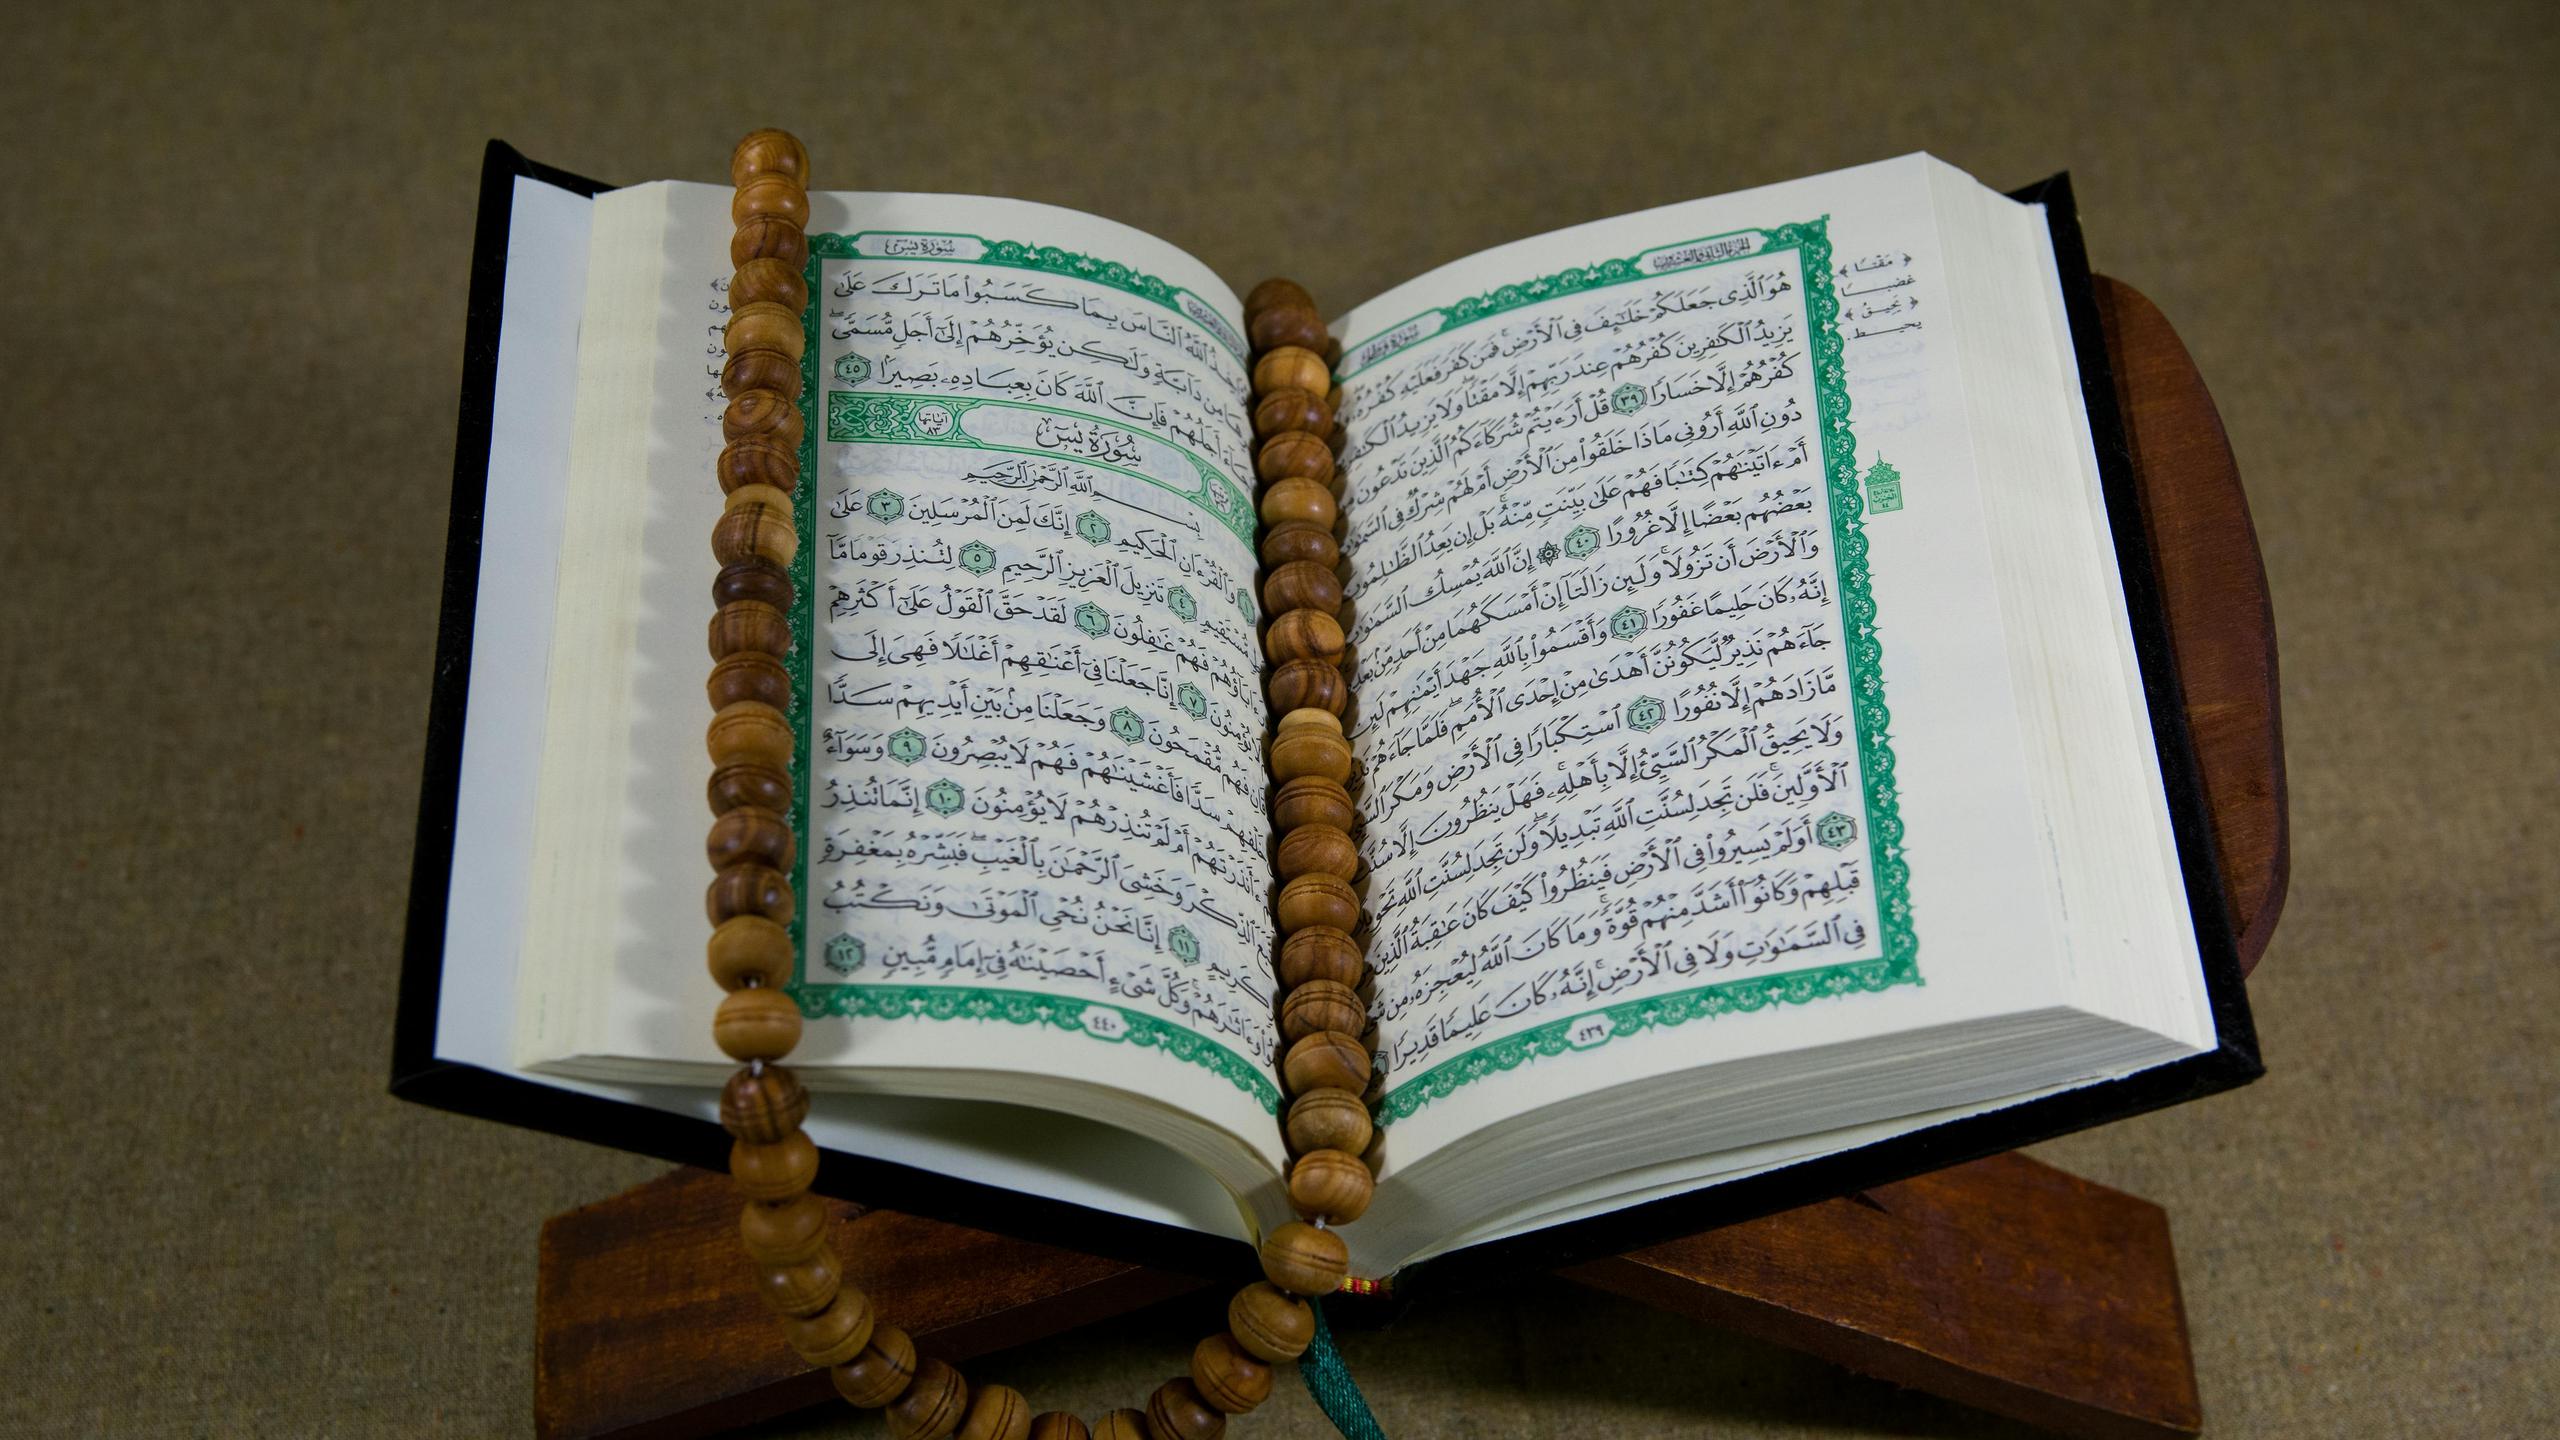 الجزء الثاني والعشرون
سورة فاطر
هُوَ ٱلَّذِى جَعَلَكُمْ خَلَـٰٓئِفَ فِى ٱلْأَرْضِ ۚ فَمَن كَفَرَ فَعَلَيْهِ كُفْرُهُۥ ۖ
يَزِيدُ ٱلْكَـٰفِرِينَ كُفْرُهُمْ عِندَ رَبِّهِمْ إِلَّا مَقْتًا ۖ وَلَا يَزِيدُ ٱلْكَـٰفِرِينَ
كُفْرُهُمْ إِلَّا خَسَارًا ٣٩ قُلْ أَرَءَيْتُمْ شُرَكَآءَكُمُ ٱلَّذِينَ تَدْعُونَ
دُونِ ٱللَّهِ أَرُونِى مَاذَا خَلَقُوا۟ مِنَ ٱلْأَرْضِ أَمْ لَهُمْ شِرْكٌ فِى ٱلسَّمَـٰوَٰتِ
أَمْ ءَاتَيْنَـٰهُمْ كِتَـٰبًا فَهُمْ عَلَىٰ بَيِّنَتٍ مِّنْهُ ۚ بَلْ إِن يَعِدُ ٱلظَّـٰلِمُونَ
بَعْضُهُم بَعْضًا إِلَّا غُرُورًا ٤٠ ۞ إِنَّ ٱللَّهَ يُمْسِكُ ٱلسَّمَـٰوَٰتِ
وَٱلْأَرْضَ أَن تَزُولَا ۚ وَلَئِن زَالَتَآ إِنْ أَمْسَكَهُمَا مِنْ أَحَدٍ مِّنۢ بَعْدِهِ
إِنَّهُۥ كَانَ حَلِيمًا غَفُورًا ٤١ وَأَقْسَمُوا۟ بِٱللَّهِ جَهْدَ أَيْمَـٰنِهِمْ لَئِن
جَآءَهُمْ نَذِيرٌ لَّيَكُونُنَّ أَهْدَىٰ مِنْ إِحْدَى ٱلْأُمَمِ ۖ فَلَمَّا جَآءَهُمْ نَذِيرٌ
مَّا زَادَهُمْ إِلَّا نُفُورًا ٤٢ ٱسْتِكْبَارًا فِى ٱلْأَرْضِ وَمَكْرَ ٱلسَّيِّئِ
وَلَا يَحِيقُ ٱلْمَكْرُ ٱلسَّيِّئُ إِلَّا بِأَهْلِهِۦ ۚ فَهَلْ يَنظُرُونَ إِلَّا سُنَّتَ
ٱلْأَوَّلِينَ ۚ فَلَن تَجِدَ لِسُنَّتِ ٱللَّهِ تَبْدِيلًا ۖ وَلَن تَجِدَ لِسُنَّتِ ٱللَّهِ تَحْوِيلًا
٤٣ أَوَلَمْ يَسِيرُوا۟ فِى ٱلْأَرْضِ فَيَنظُرُوا۟ كَيْفَ كَانَ عَـٰقِبَةُ ٱلَّذِينَ
قَبْلِهِمْ وَكَانُوٓا۟ أَشَدَّ مِنْهُمْ قُوَّةً ۚ وَمَا كَانَ ٱللَّهُ لِيُعْجِزَهُۥ مِن شَىْءٍ
فِى ٱلسَّمَـٰوَٰتِ وَلَا فِى ٱلْأَرْضِ ۚ إِنَّهُۥ كَانَ عَلِيمًا قَدِيرًا
٤٣٩
﴿ مَقْتًا ﴾
غضبا
﴿ يَحِيقُ ﴾
يحيط.
سورة يس
ٱللَّهُ ٱلنَّاسَ بِمَا كَسَبُوا۟ مَا تَرَكَ عَلَىٰ
مِن دَآبَّةٍ وَلَـٰكِن يُؤَخِّرُهُمْ إِلَىٰٓ أَجَلٍ مُّسَمًّى ۖ
أَجَلُهُمْ فَإِنَّ ٱللَّهَ كَانَ بِعِبَادِهِۦ بَصِيرًۢا ٤٥
سُورَةُ يسٓ
آياتها ٨٣
بِسْمِ ٱللَّهِ ٱلرَّحْمَـٰنِ ٱلرَّحِيمِ
١ وَٱلْقُرْءَانِ ٱلْحَكِيمِ ٢ إِنَّكَ لَمِنَ ٱلْمُرْسَلِينَ ٣ عَلَىٰ
مُّسْتَقِيمٍ ٤ تَنزِيلَ ٱلْعَزِيزِ ٱلرَّحِيمِ ٥ لِتُنذِرَ قَوْمًا مَّآ
ءَابَآؤُهُمْ فَهُمْ غَـٰفِلُونَ ٦ لَقَدْ حَقَّ ٱلْقَوْلُ عَلَىٰٓ أَكْثَرِهِمْ
يُؤْمِنُونَ ٧ إِنَّا جَعَلْنَا فِىٓ أَعْنَـٰقِهِمْ أَغْلَـٰلًا فَهِىَ إِلَى
فَهُم مُّقْمَحُونَ ٨ وَجَعَلْنَا مِنۢ بَيْنِ أَيْدِيهِمْ سَدًّا
خَلْفِهِمْ سَدًّا فَأَغْشَيْنَـٰهُمْ فَهُمْ لَا يُبْصِرُونَ ٩ وَسَوَآءٌ
ءَأَنذَرْتَهُمْ أَمْ لَمْ تُنذِرْهُمْ لَا يُؤْمِنُونَ ١٠ إِنَّمَا تُنذِرُ
ٱلذِّكْرَ وَخَشِىَ ٱلرَّحْمَـٰنَ بِٱلْغَيْبِ ۖ فَبَشِّرْهُ بِمَغْفِرَةٍ
كَرِيمٍ ١١ إِنَّا نَحْنُ نُحْىِ ٱلْمَوْتَىٰ وَنَكْتُبُ
وَءَاثَـٰرَهُمْ ۚ وَكُلَّ شَىْءٍ أَحْصَيْنَـٰهُ فِىٓ إِمَامٍ مُّبِينٍ ١٢
٤٤٠